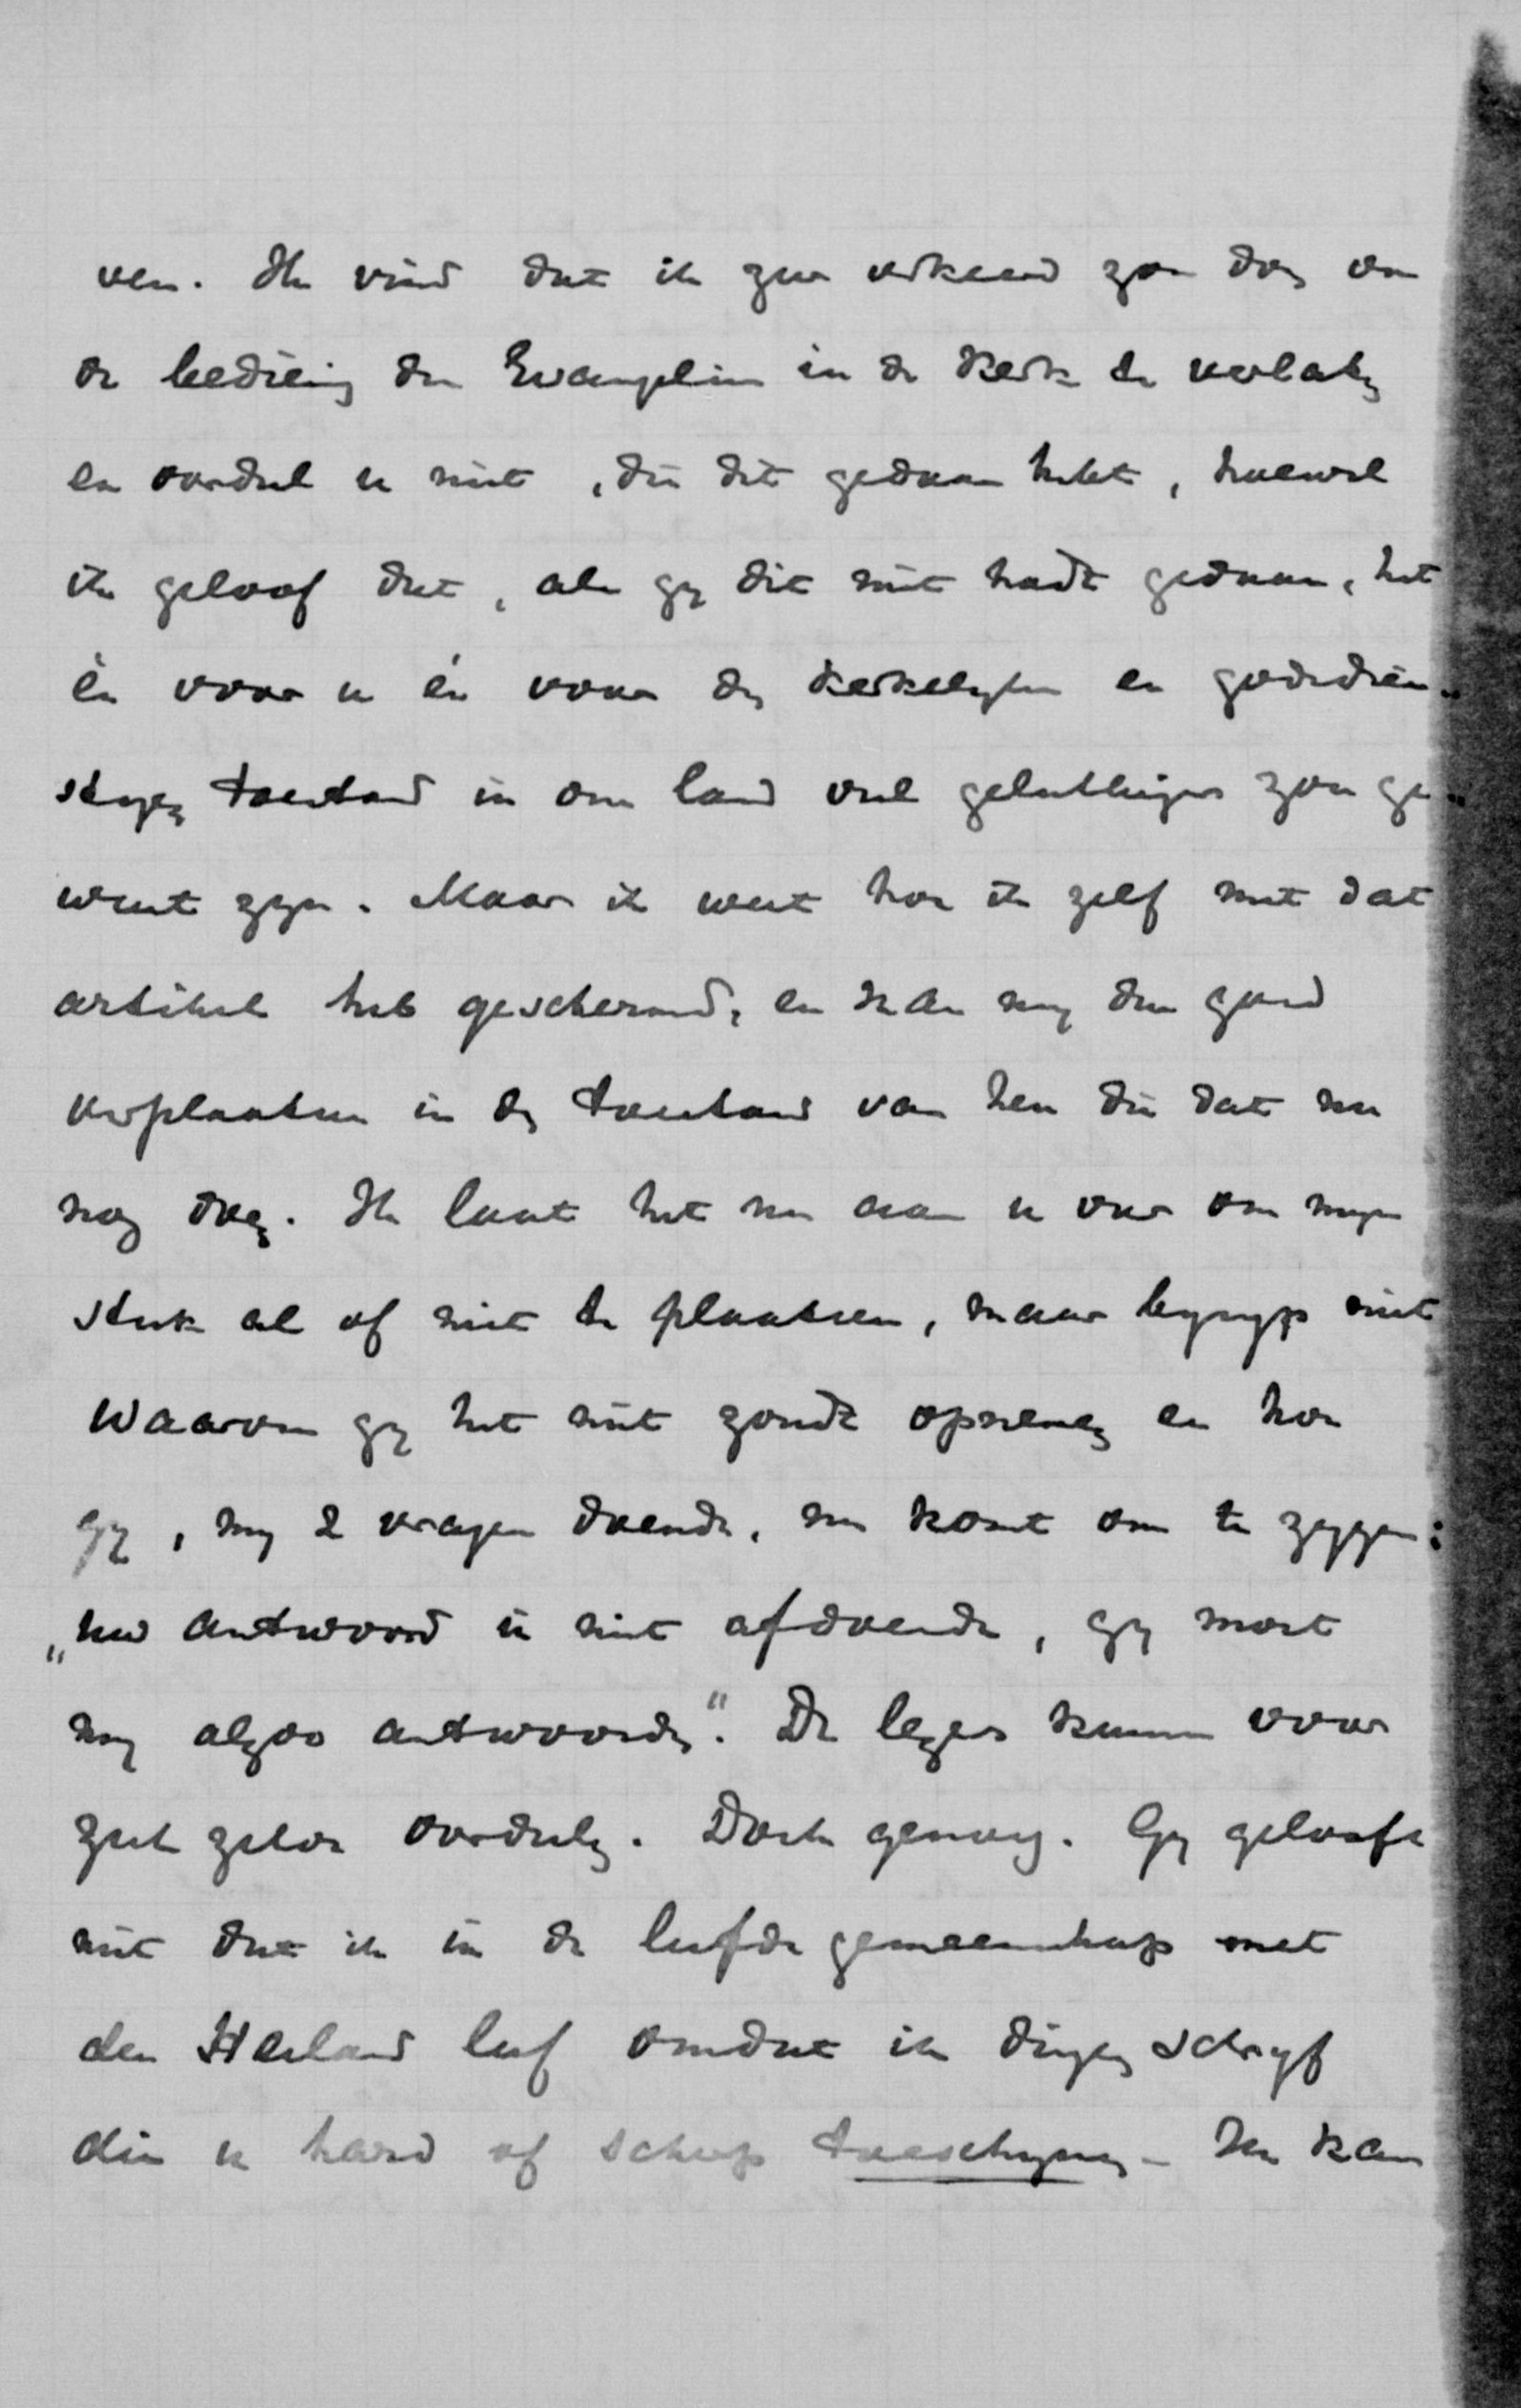 ven. Ik vind dat ik zeer verkeerd zou doen om
de bediening des Evangelies in de Kerk te verlaten
en oordeel u niet, die dit gedaan hebt, hoewel
ik geloof dat, als gy dit niet hadt gedaan, het
èn voor u èn voor den kerkelyken en godsdien-
stigen toestand in ons land veel gelukkiger zou ge-
weest zyn. Maar ik weet hoe ik zelf met dat
artikel heb geschermd, en kan my dus goed
verplaatsen in den toestand van hen die dat nu
nog doen. Ik laat het nu aan u over om myn
stuk al of niet te plaatsen, maar begryp niet
waarom gy het niet zoudt opnemen en hoe
gy, my 2 vragen doende, nu komt om te zeggen:
„uw antwoord is niet afdoende, gy moet
my alzoo antwoorden". De lezers kunnen voor
zich zelven oordeelen. Doch genoeg. Gy gelooft
niet dat ik in de liefde gemeenschap met
den Heiland leef omdat ik dingen schryf
die u hard of scherp toeschynen - Ik kan